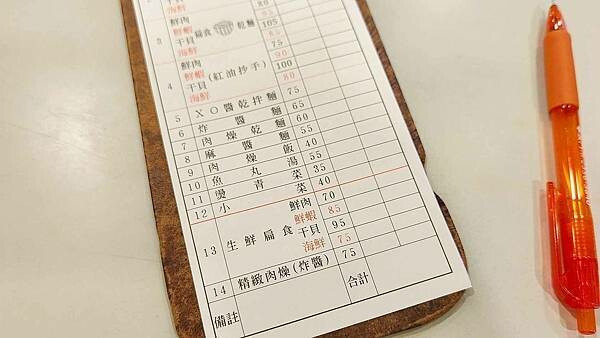 海鮮
鮮肉 80
鮮蝦
3 干貝 扁食 乾麵 105
海鮮 85
鮮肉 75
鮮蝦 90
4 干貝 (紅油抄手) 100
海鮮 80
5 XO醬乾拌麵 75
6 炸醬麵 65
7 肉燥乾麵 60
8 麻醬麵 55
9 肉燥飯 40
10 魚丸湯 55
11 燙青菜 35
12 小菜 40
鮮肉 70
鮮蝦 85
13 生鮮扁食 干貝 95
海鮮 75
14 精緻肉燥(炸醬) 75
備註 合計